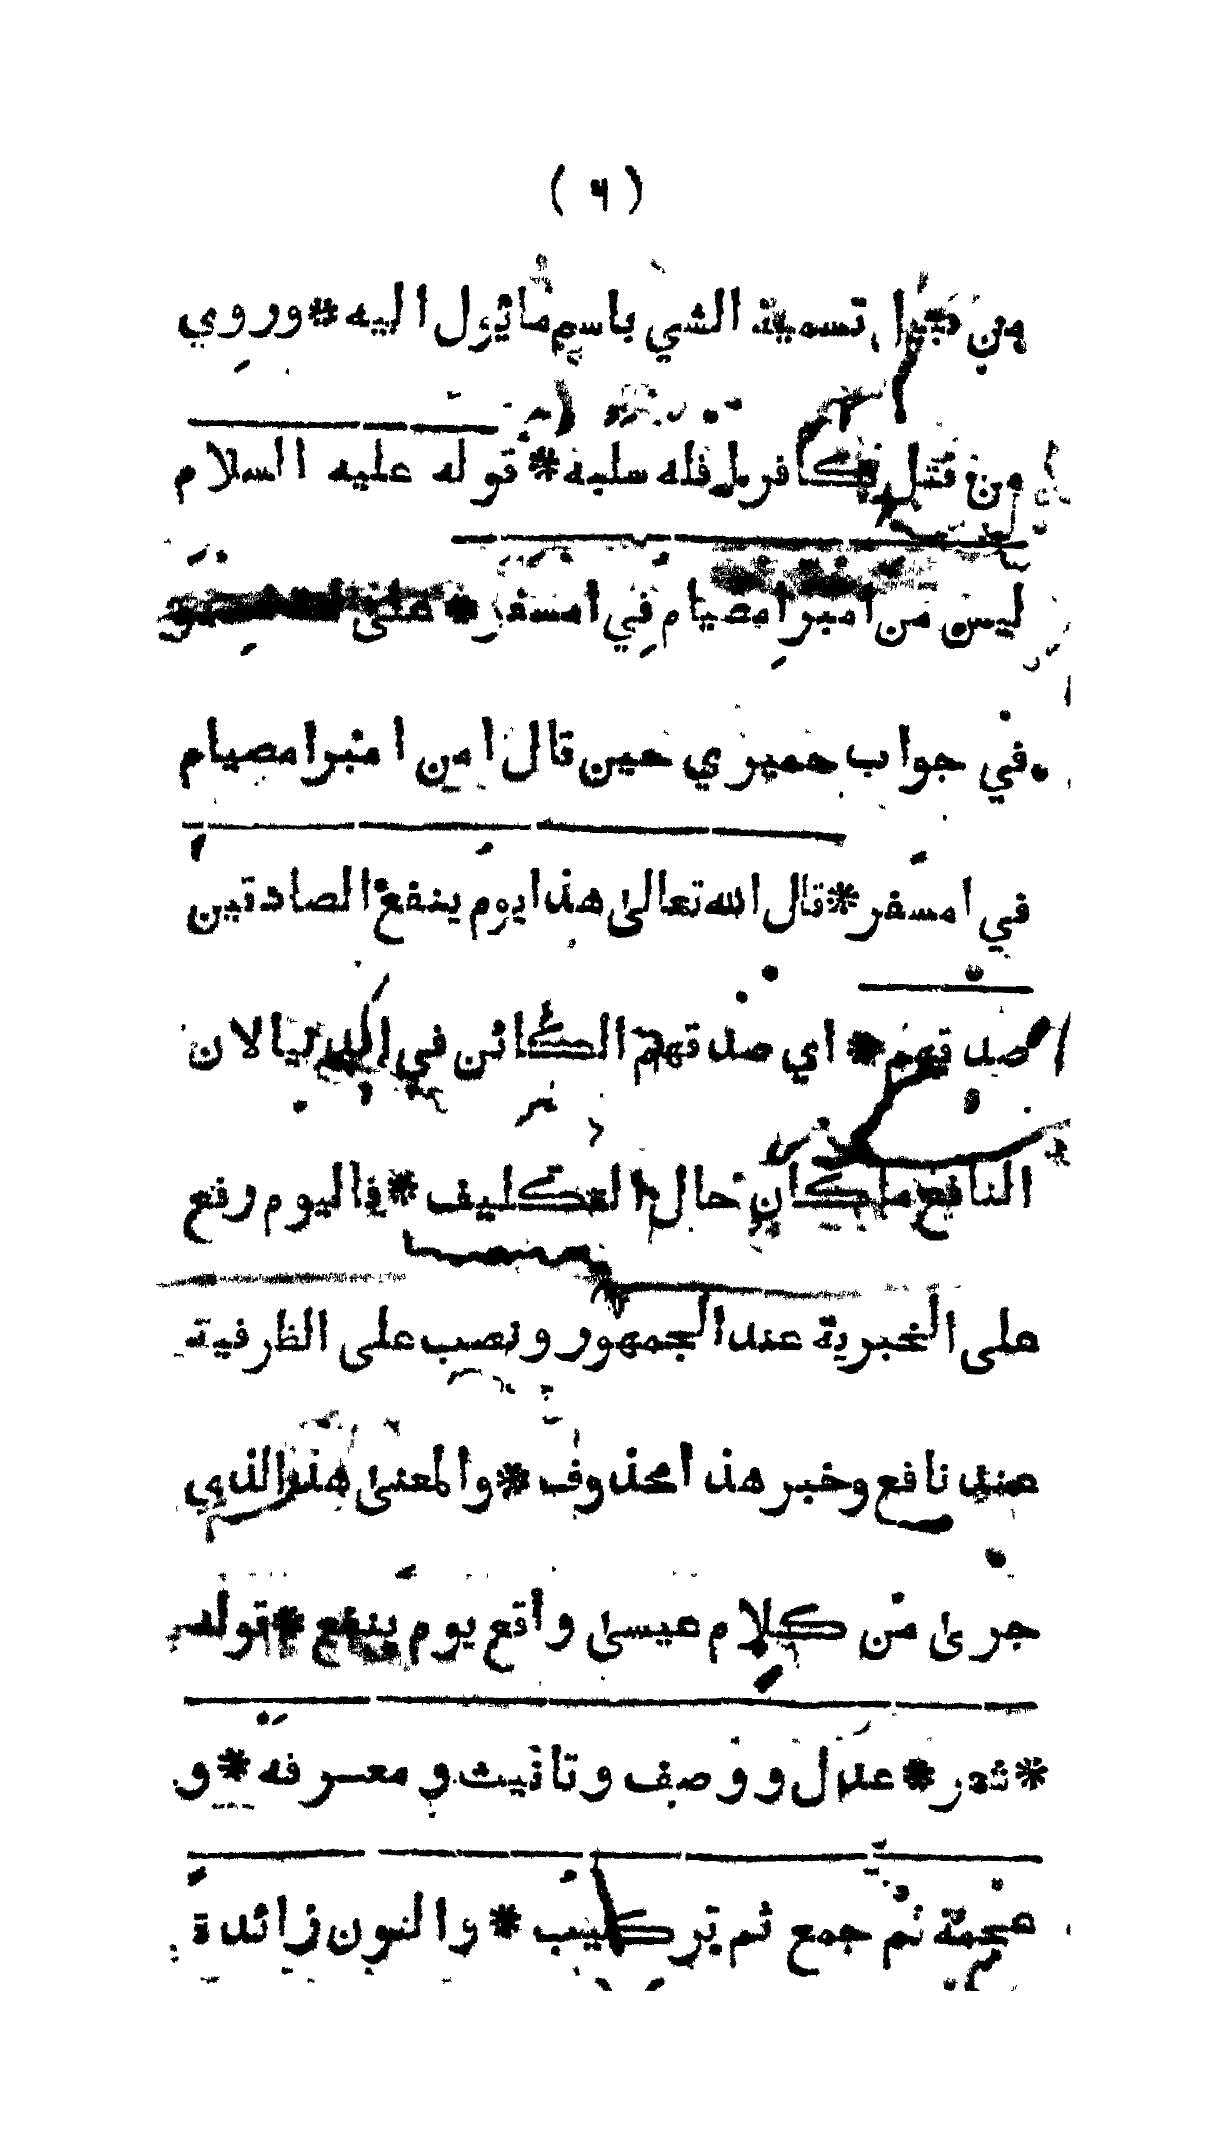 ( ٦ )
من قتيلا تسمية الشي باسم مايؤل اليه * وروي
من قتل كافرا فله سلبه * قوله عليه السلام
ليس من امبر امصيام في امسفر * على
في جواب حميري حين قال امن امبر امصيام
في امسفر * قال الله تعالى هذا يوم ينفع الصادقين
صدقهم * اي صدقهم الكائن في الدنيا لان
النافع ما كان حال التكليف * فاليوم رفع
على الخبرية عند الجمهور و نصب على الظرفية
عند نافع وخبر هذا محذوف * والمعنى هذا الذي
جرى من كلام عيسى واقع يوم ينفع * قوله
* شعر * عدل و وصف و تانيث و معرفه * و
عجمة ثم جمع ثم تركيب * والنون زائدة